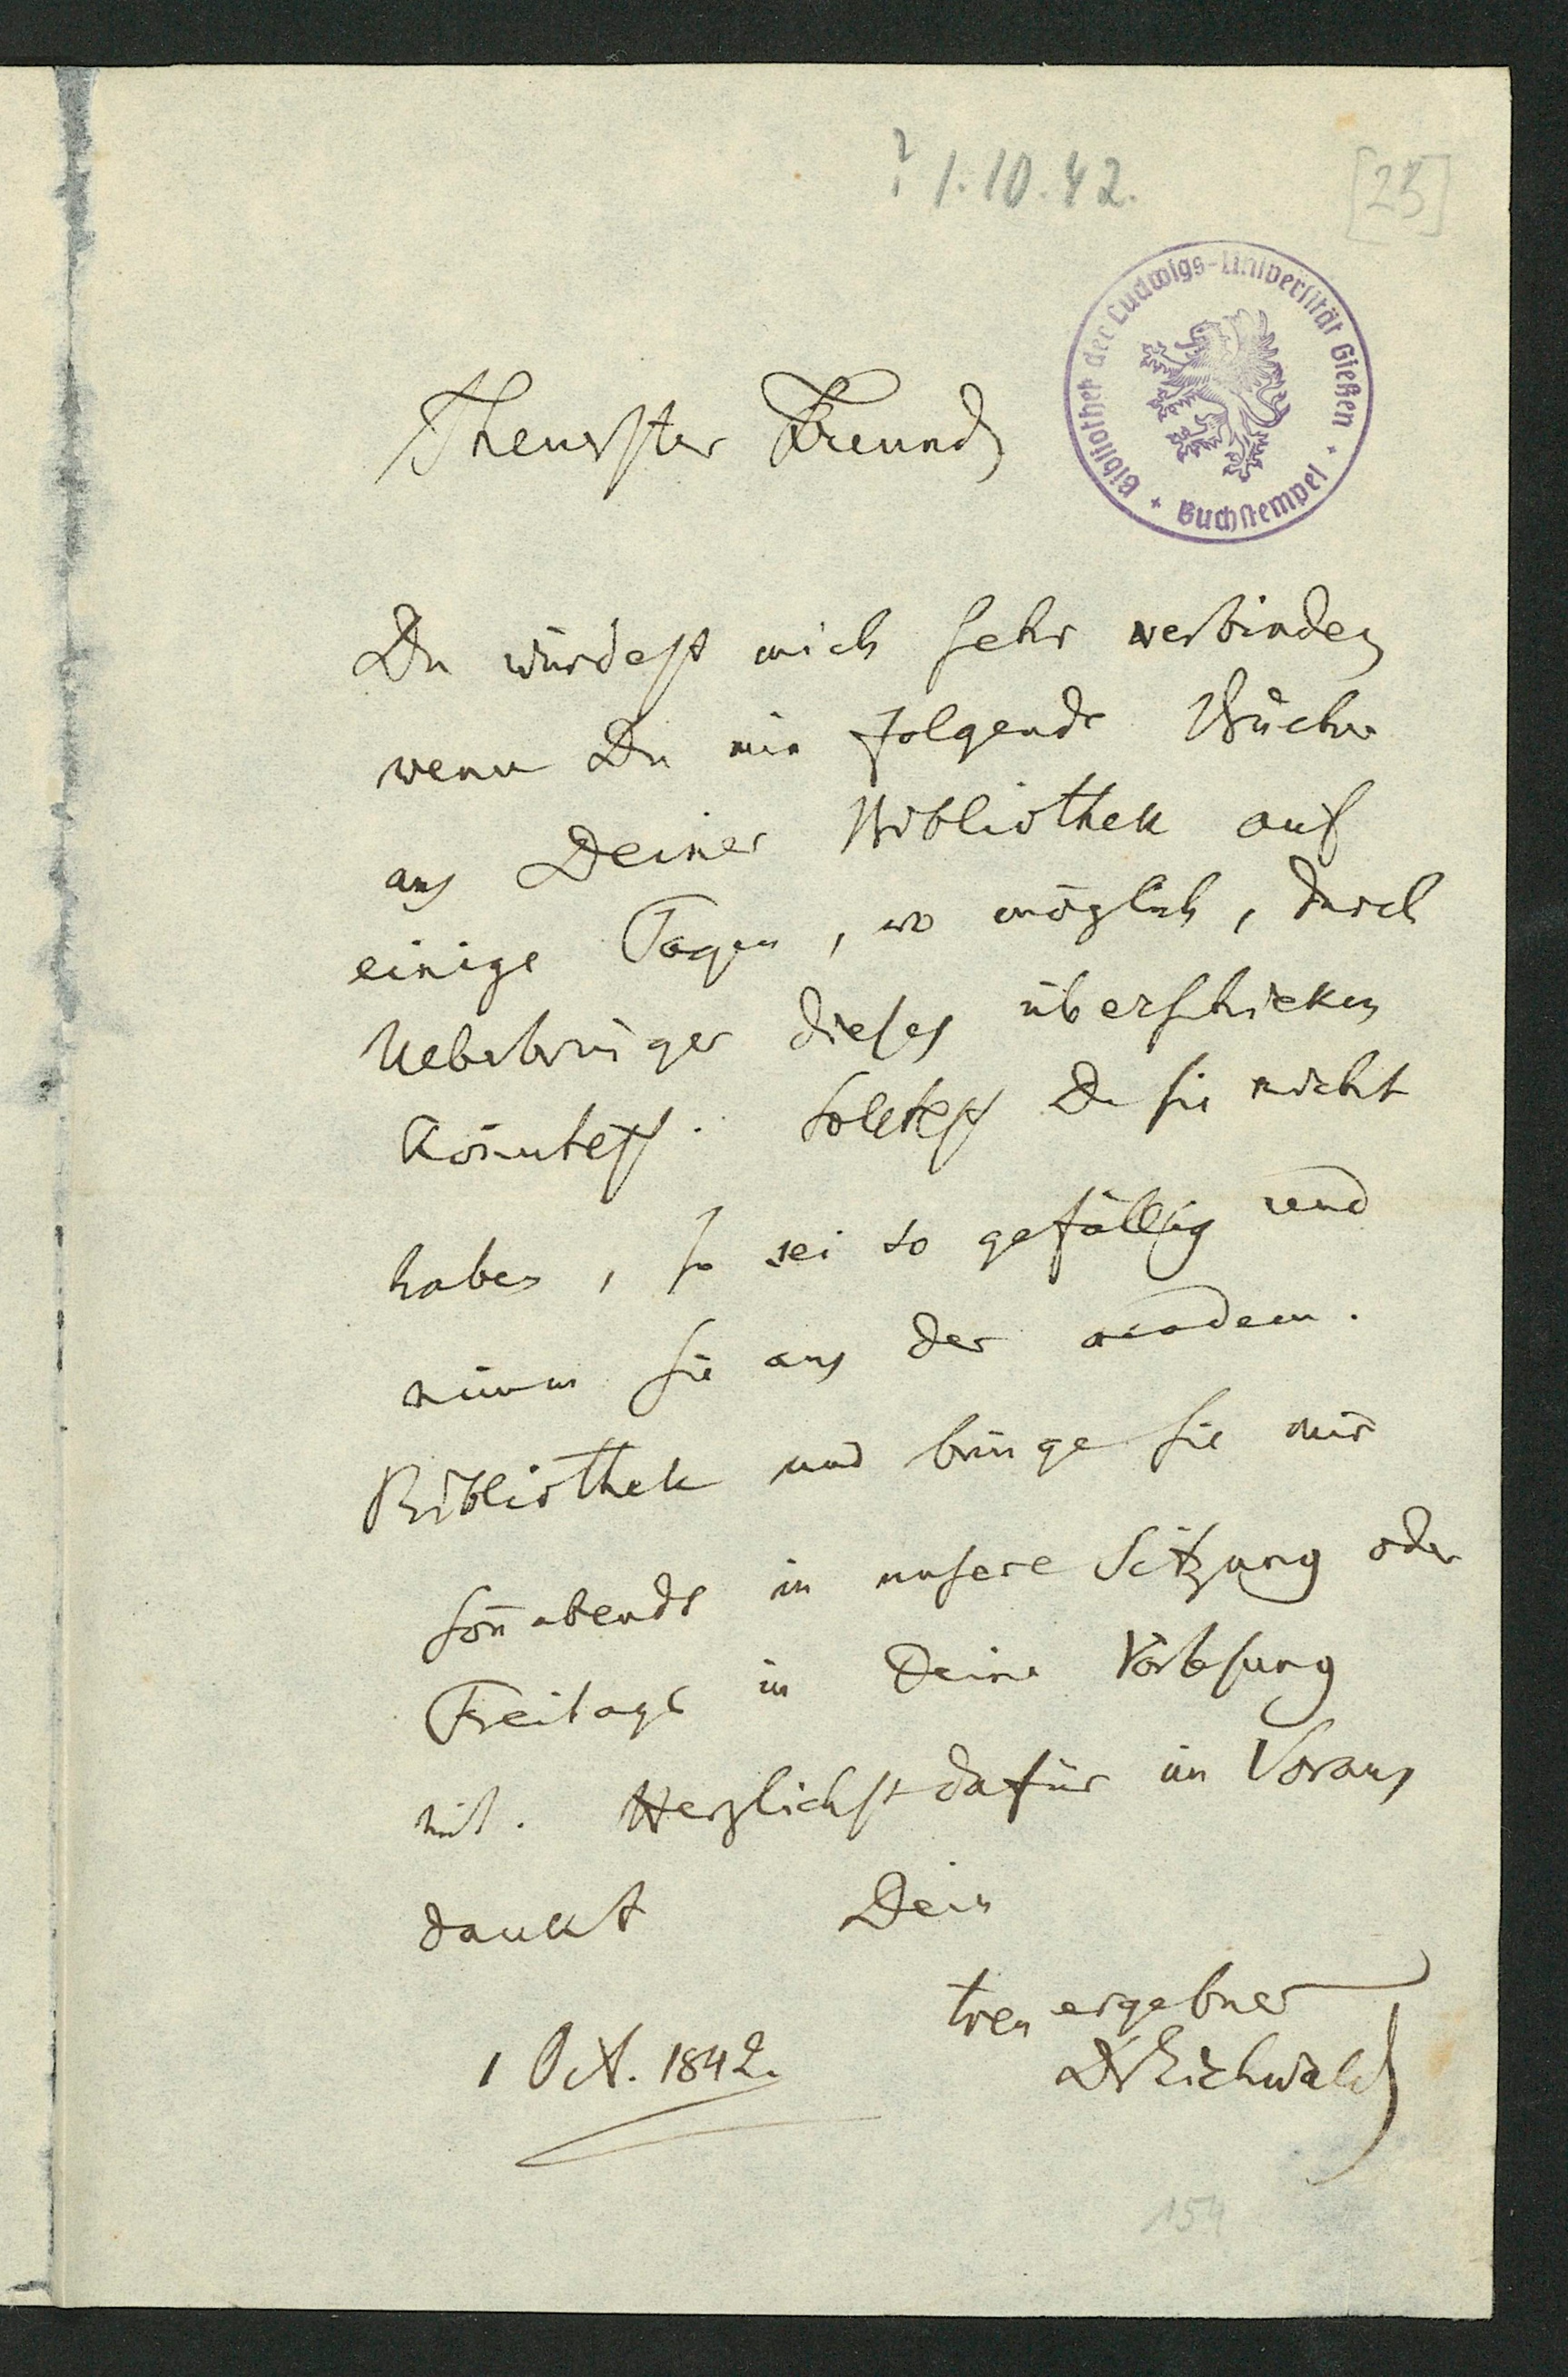 ? 1.10.42.
[25]
Bibliothek der Ludwigs-Universität Gießen + Buchstempel +
Theuerster Freund
Du würdest mich sehr verbinden
wenn Du mir folgende Bücher
aus Deiner Bibliothek auf
einige Tagen, wo möglich, durch
Ueberbringer dieses überschicken
könntest. Solltest Du sie nicht
haben, so sei so gefällig und
nimm sie aus der academ.
Bibliothek und bringe sie mir
Soñabends in unsere Sitzung oder
Freitags in Deine Vorlesung
mit. Herzlichst dafür im Voraus
dankt Dein
treu ergebner
1 Oct. 1842.
Dr Eichwald
154